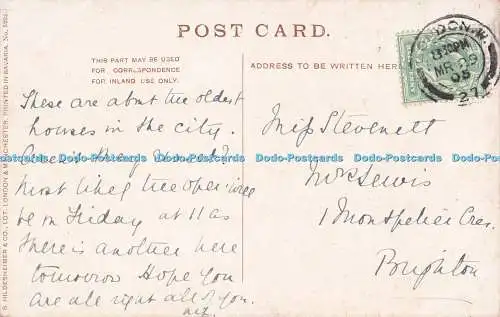 POST CARD.
THIS PART MAY BE USED
FOR CORRESPONDENCE
FOR INLAND USE ONLY.
ADDRESS TO BE WRITTEN HERE
These are about the oldest
houses in the city.
they
most likely the oper will
be on Friday at 11 as
there is another here
tomorrow Hope you
are all right all of you.
Miss Stevenett
Lewis
1 Montpelier Cres.
Brighton
DON. W.
8.30PM
05
27
S. HILDESHEIMER & CO., LDT. LONDON & MANCHESTER. PRINTED IN BAVARIA. No.
Dodo-Postcards Dodo-Postcards Dodo-Postcards Dodo-Postcards Dodo-Postcards